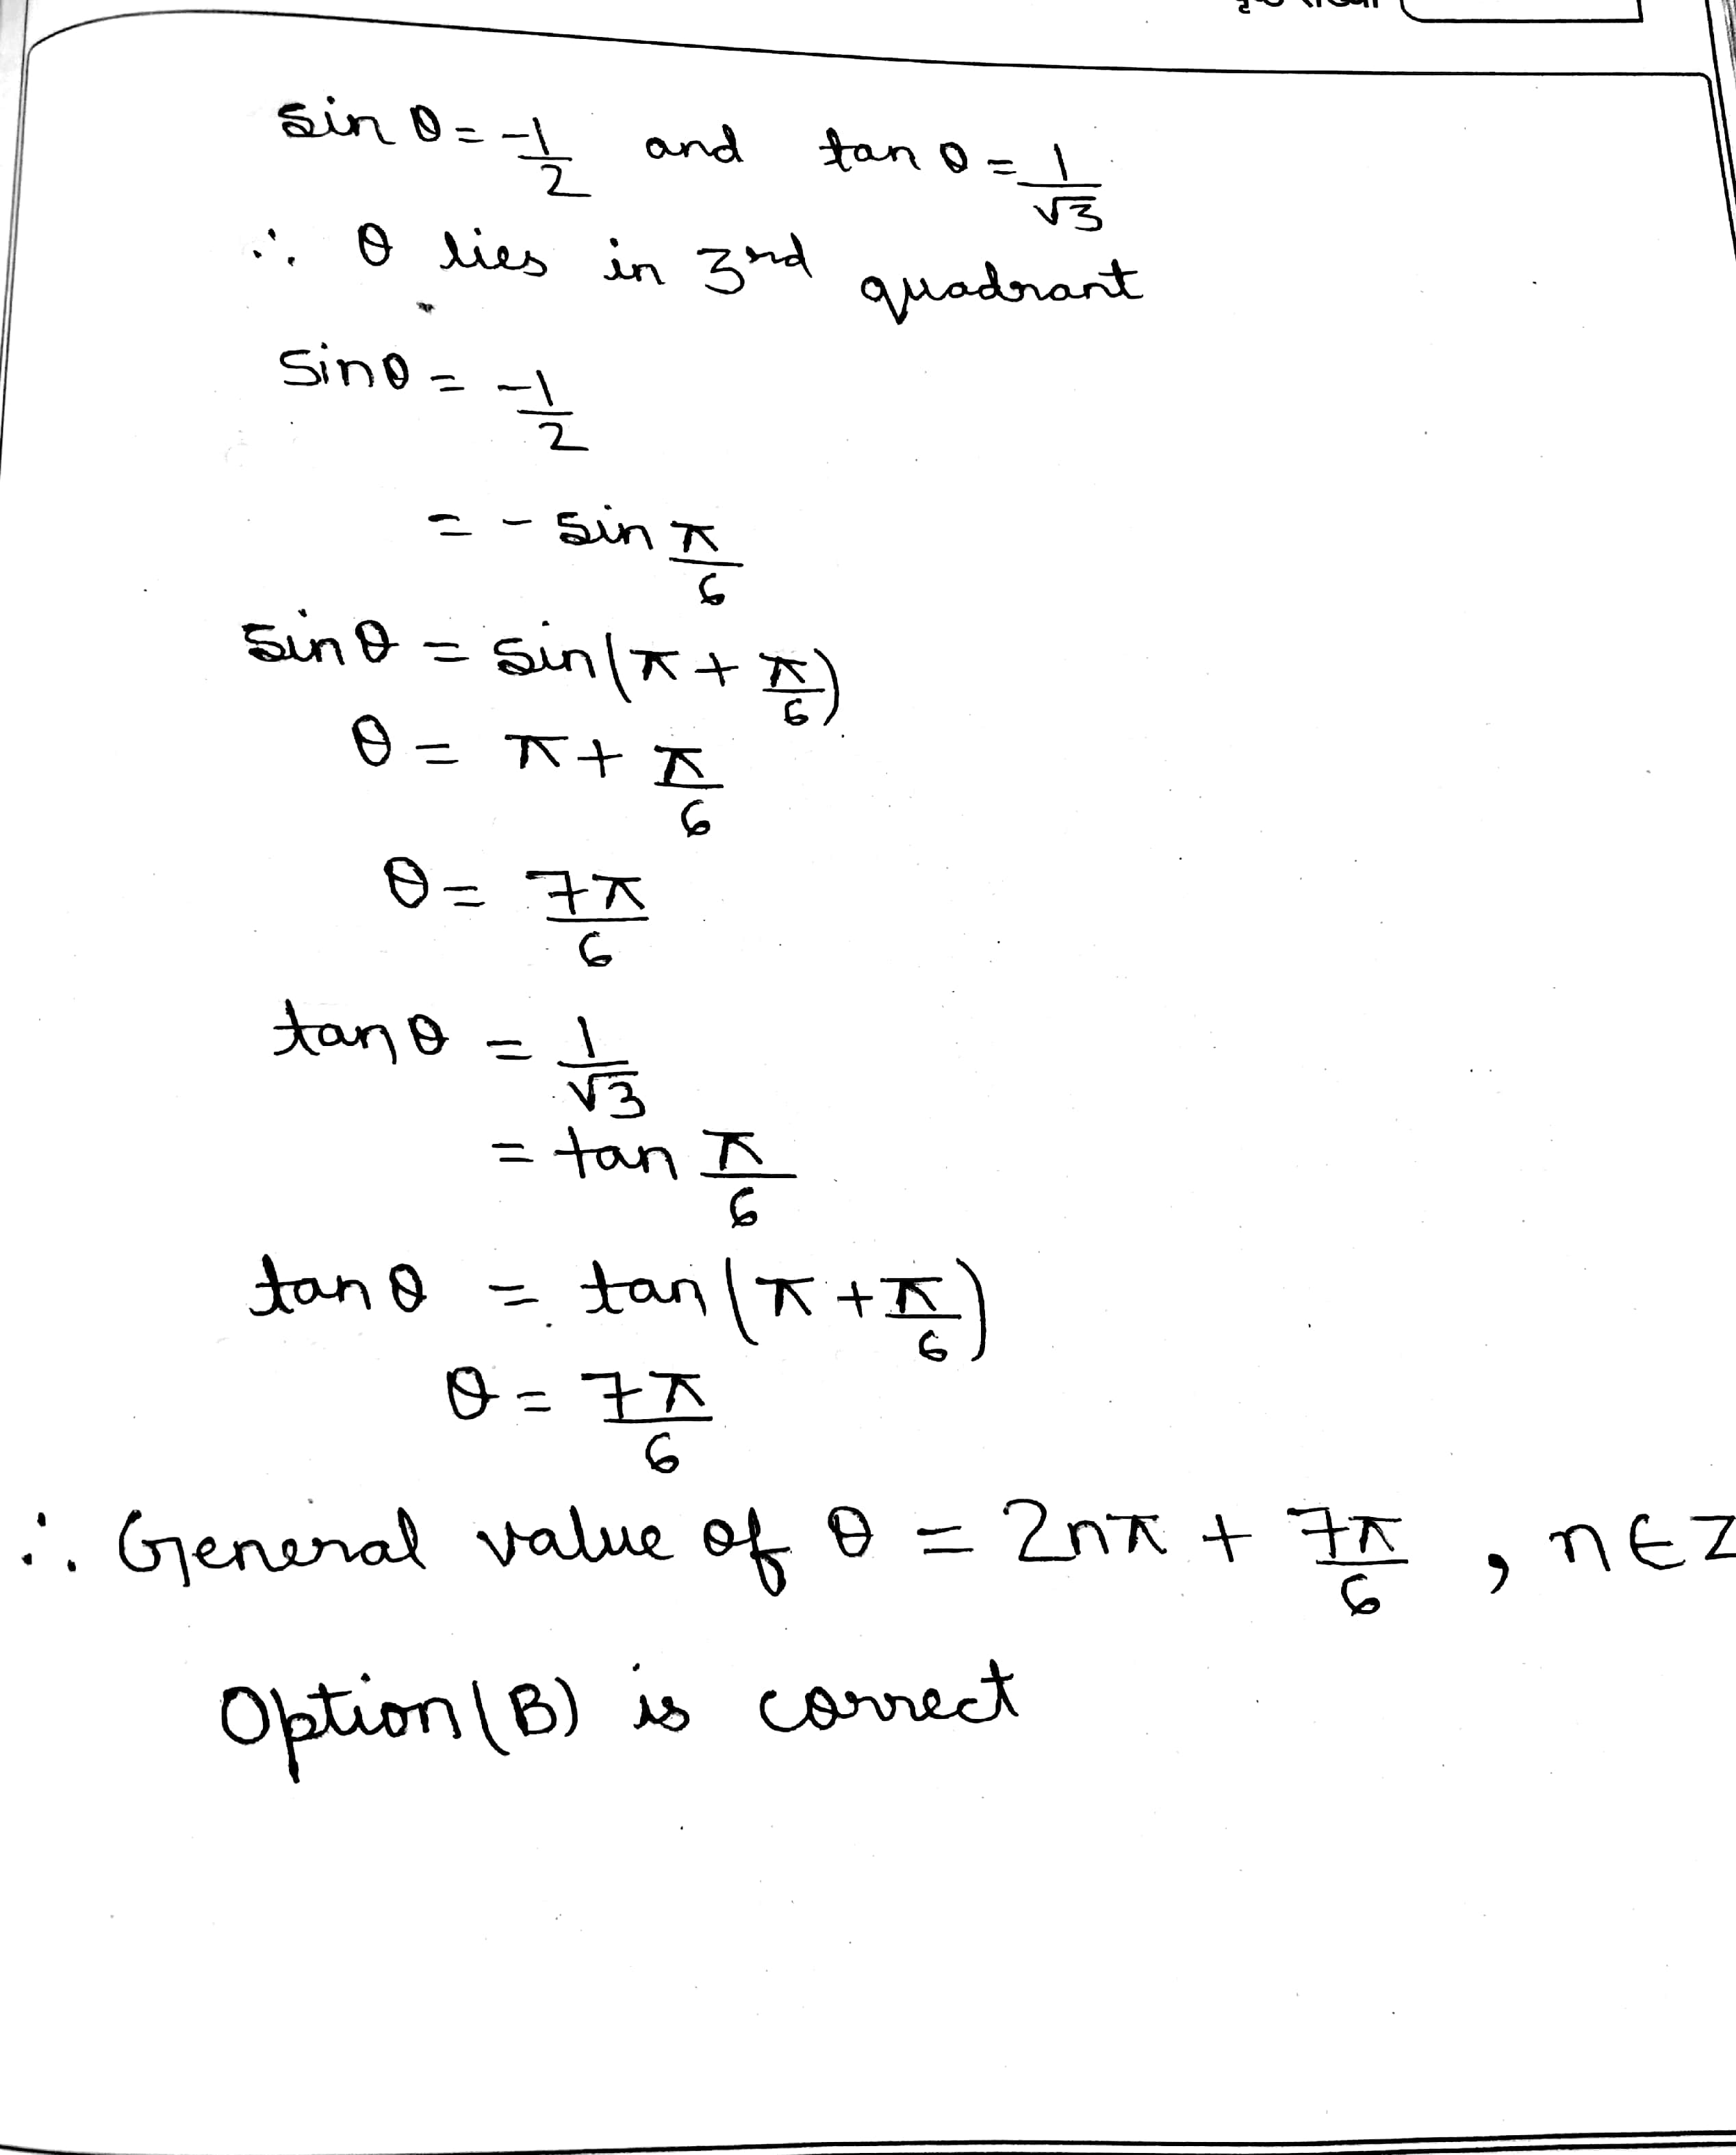 sin θ = -1/2 and tan θ = 1/√3
∴ θ lies in 3rd quadrant
sin θ = -1/2
= - sin π/6
sin θ = sin(π + π/6)
θ = π + π/6
θ = 7π/6
tan θ = 1/√3
= tan π/6
tan θ = tan(π + π/6)
θ = 7π/6
∴ General value of θ = 2nπ + 7π/6 , n ∈ Z
Option (B) is correct